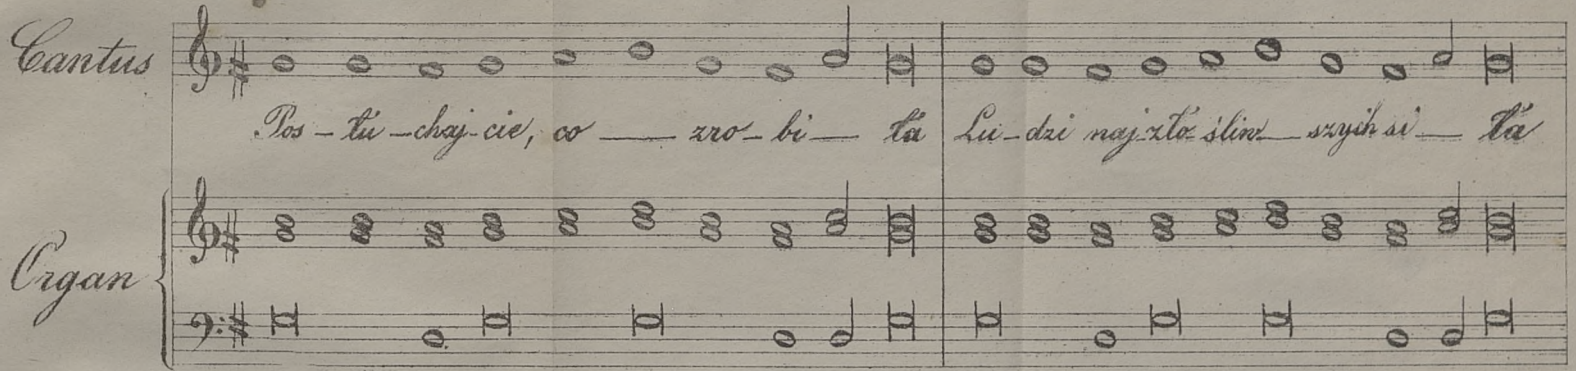 Cantus
Pos-łu-chaj-cie, co — zro-bi — ła Lu-dzi naj-zło-śliw — szych si — ła
Organ